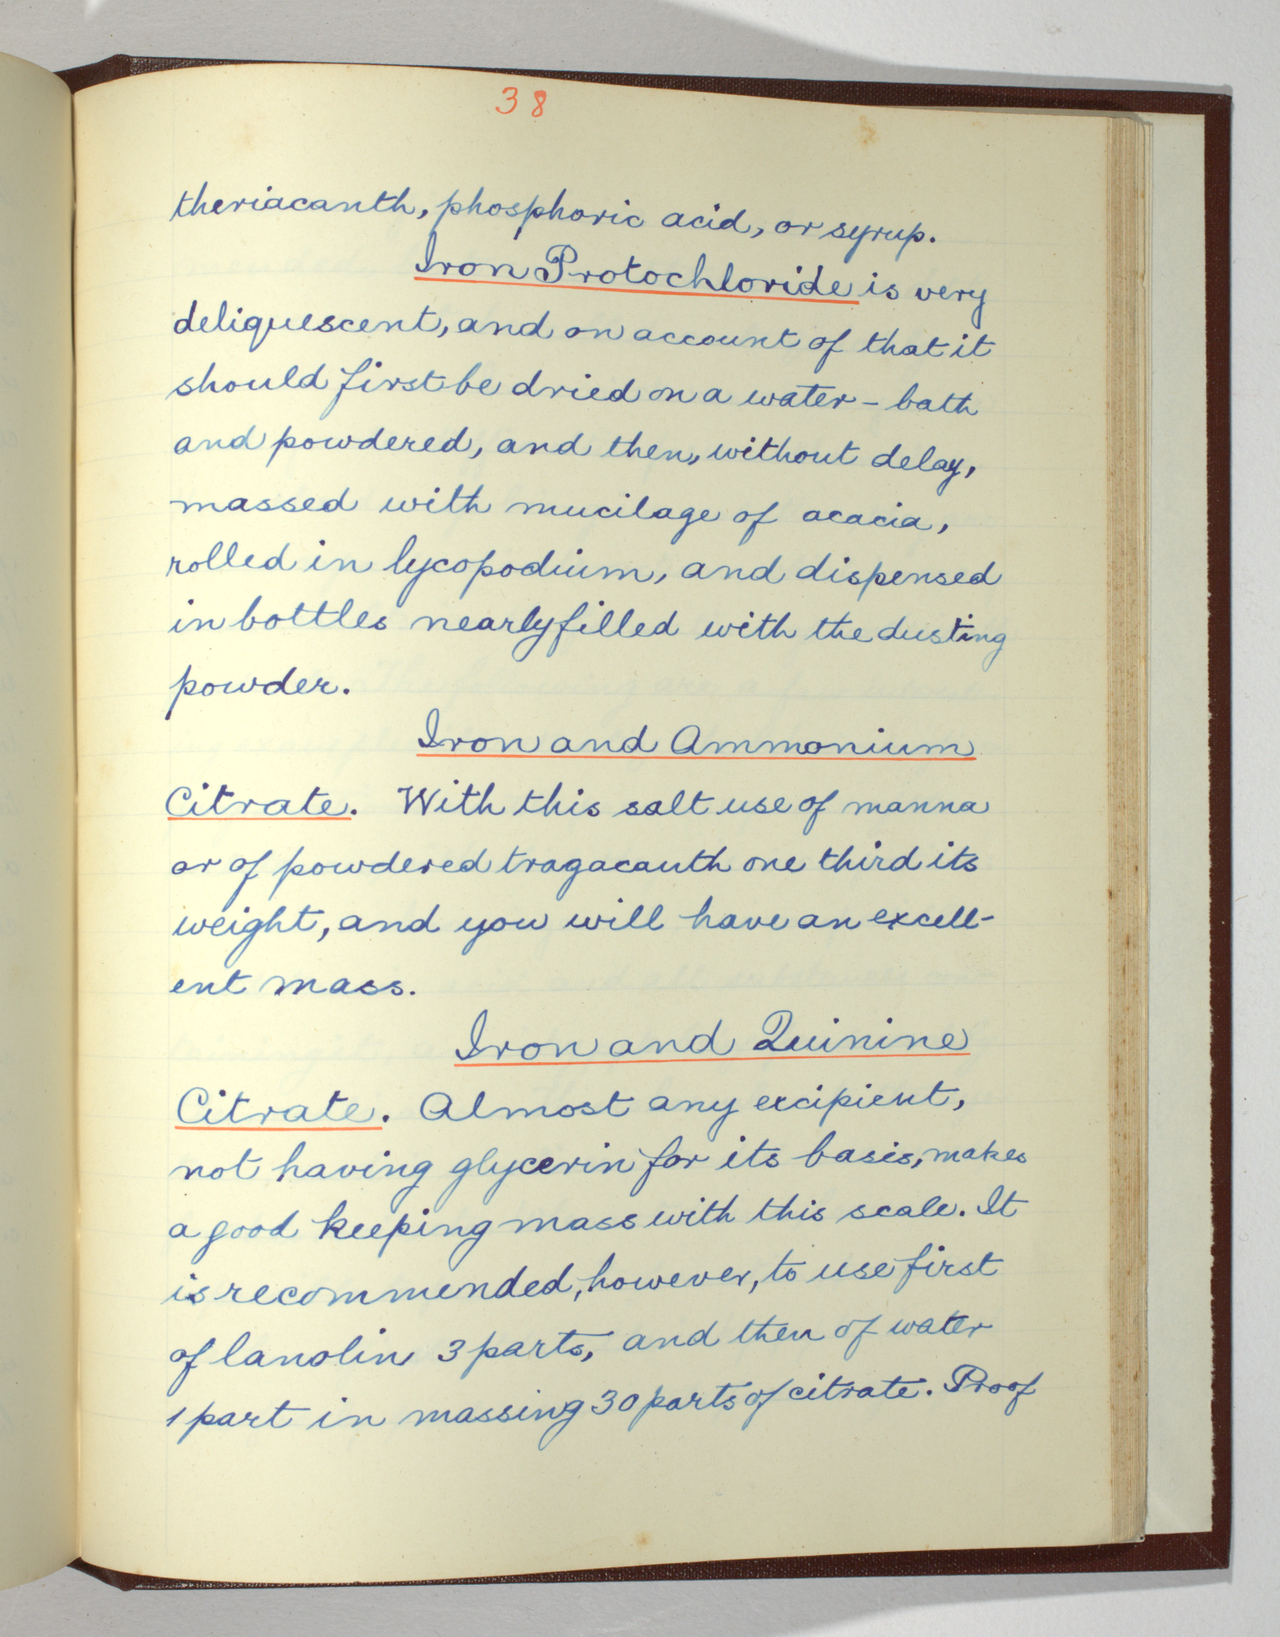 38
theriacanth, phosphoric acid, or syrup.
Iron Protochloride is very
deliquescent, and on account of that it
should first be dried on a water-bath
and powdered, and then, without delay,
massed with mucilage of acacia,
rolled in lycopodium, and dispensed
in bottles nearly filled with the dusting
powder.
Iron and Ammonium
Citrate. With this salt use of manna
or of powdered tragacanth one third its
weight, and you will have an excell-
ent mass.
Iron and Quinine
Citrate. Almost any excipient,
not having glycerin for its basis, makes
a good keeping mass with this scale. It
is recommended, however, to use first
of lanolin 3 parts, and then of water
1 part in massing 30 parts of citrate. Proof